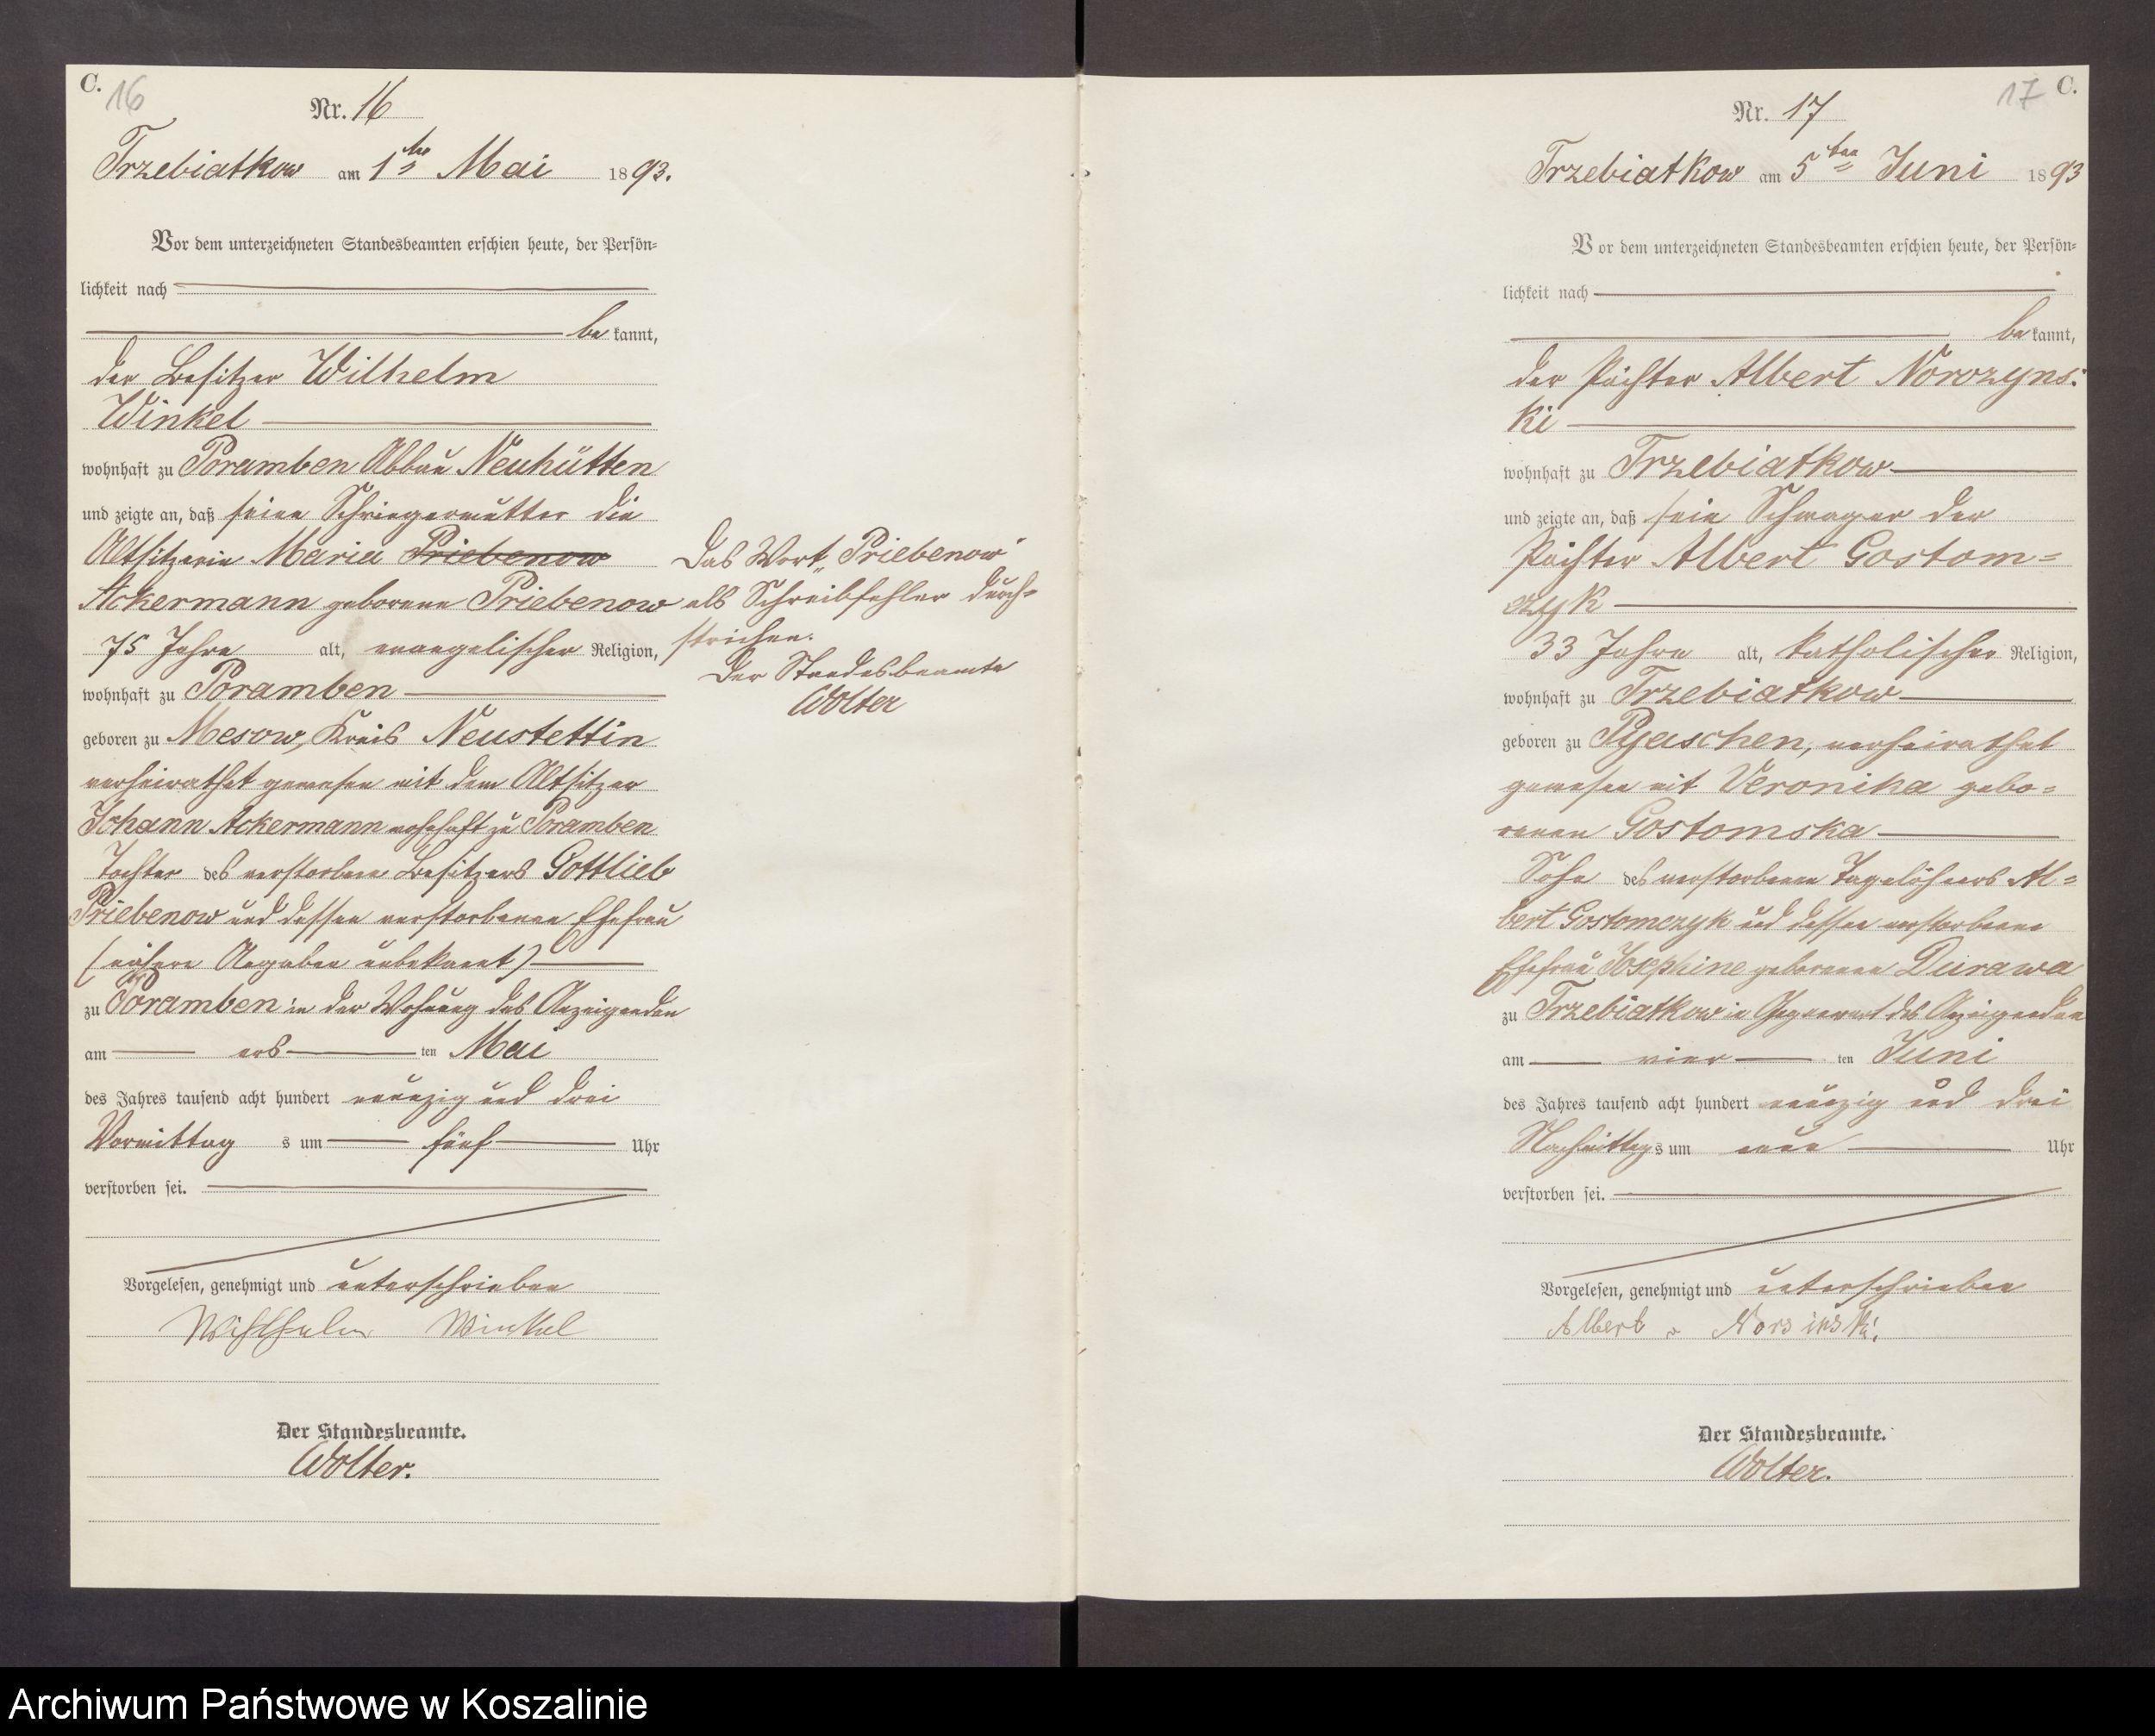 C.
16
Nr. 16
Trzebiatkow am 1ten Mai 1893.
Vor dem unterzeichneten Standesbeamten erschien heute, der Persön=
lichkeit nach
be kannt,
der Besitzer Wilhelm
Winkel
wohnhaft zu Poramben Abbau Neuhütten
und zeigte an, daß seine Schwiegermutter die
Altsitzerin Maria Priebenow
Ackermann geborene Priebenow
75 Jahre alt, evangelischer Religion,
wohnhaft zu Poramben
geboren zu Mesow, Kreis Neustettin
verheirathet gewesen mit dem Altsitzer
Johann Ackermann wohnhaft zu Poramben
Tochter des verstorbenen Besitzers Gottlieb
Priebenow und dessen verstorbenen Ehefrau
(nähere Angaben unbekannt)
zu Poramben in der Wohnung des Anzeigenden
am ers ten Mai
des Jahres tausend acht hundert neunzig und drei
Vormittag s um fünf Uhr
verstorben sei.
Vorgelesen, genehmigt und unterschrieben
Wilhelm Winkel
Der Standesbeamte.
Wolter.
Das Wort „Priebenow"
als Schreibfehler durch=
strichen.
Der Standesbeamte
Wolter
17 C.
Nr. 17
Trzebiatkow am 5ten Juni 1893
Vor dem unterzeichneten Standesbeamten erschien heute, der Persön=
lichkeit nach
be kannt,
der Pächter Albert Norozyns=
ki
wohnhaft zu Trzebiatkow
und zeigte an, daß sein Schwager der
Pächter Albert Gostom=
czyk
33 Jahre alt, katholischer Religion,
wohnhaft zu Trzebiatkow
geboren zu Pyaschen, verheirathet
gewesen mit Veronika gebo=
renen Gostomska
Sohn des verstorbenen Tagelöhners Al=
bert Gostomczyk und dessen verstorbene
Ehefrau Josephine geborenen Durawa
zu Trzebiatkow in Gegenwart des Anzeigenden
am vier ten Juni
des Jahres tausend acht hundert neunzig und drei
Nachmittags um neun Uhr
verstorben sei.
Vorgelesen, genehmigt und unterschrieben
Albert Norsinski.
Der Standesbeamte.
Wolter.
Archiwum Państwowe w Koszalinie